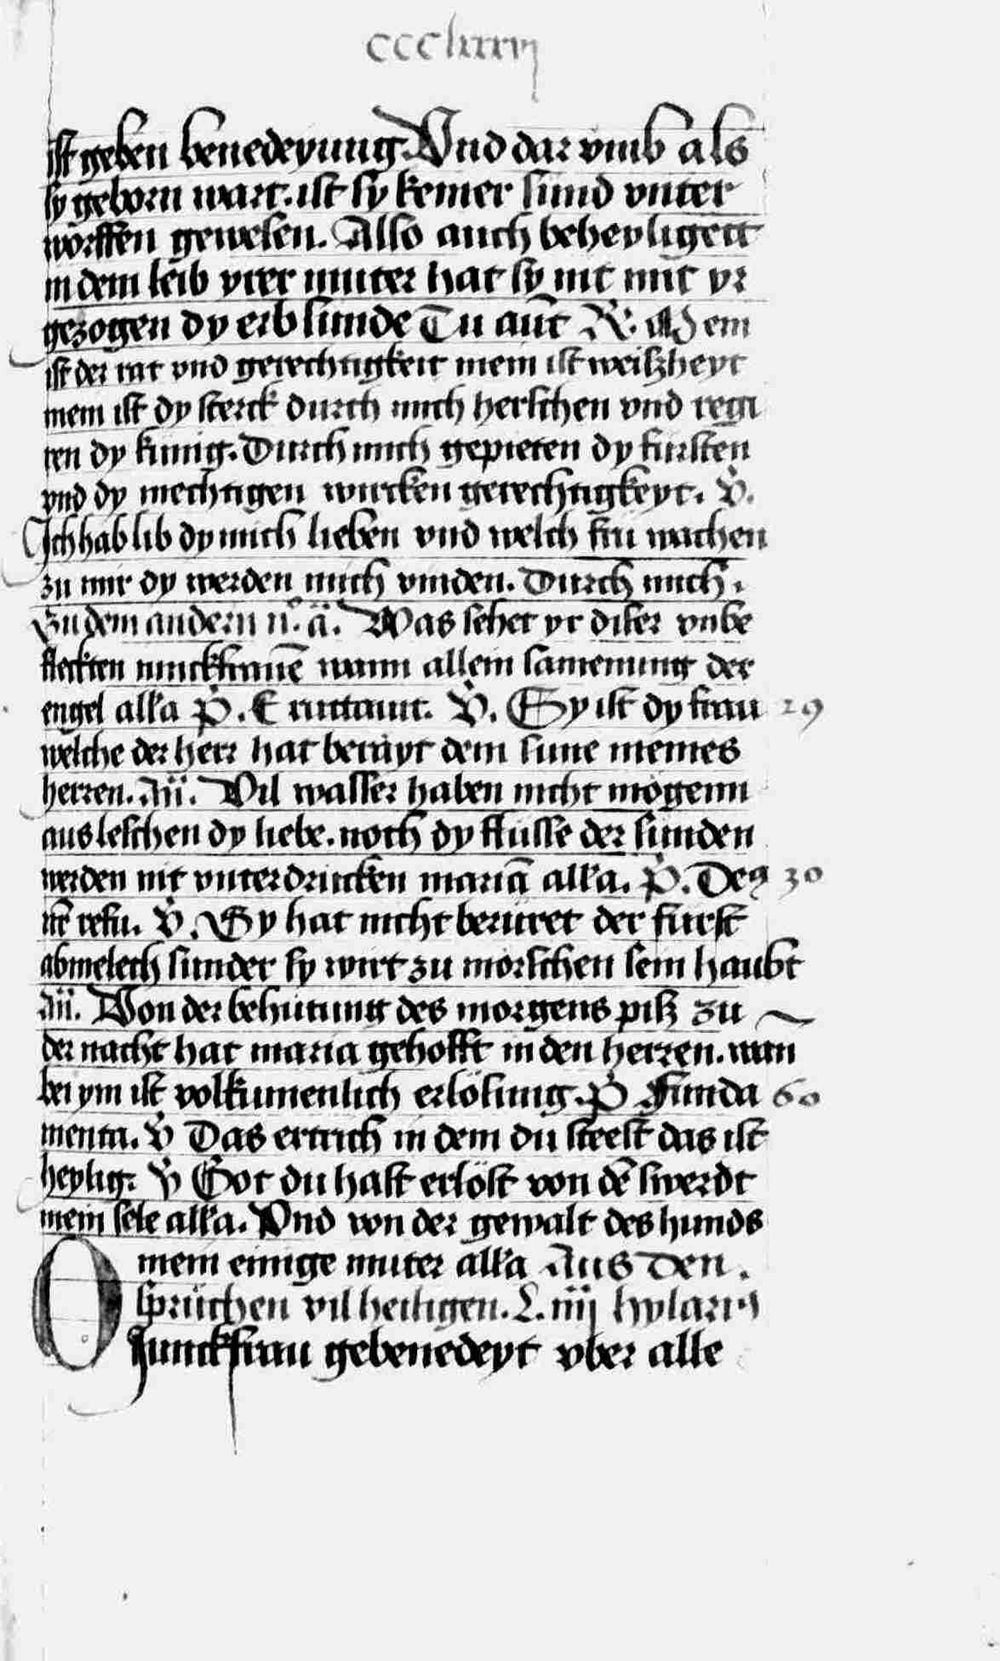 ccclxxxvj
ist geben benedeyung. Vnd dar vmb als
sy geborn wart. ist sy keiner sund vnter
worffen gewesen. Also auch beheyligett
in dem leib yrer muter hat sy nit mit yr
gezogen dy erb sunde Tu aut̄ R. Mein
ist der rat vnd gerechtigkeit mein ist weiszheyt
mein ist dy sterck durch mich herschen vnd regi
ren dy kunig. Durch mich gepieten dy fursten
vnd dy mechtigen wurcken gerechtigkeyt. V.
Ich hab lib dy mich lieben vnd welch fru wachen
zu mir dy werden mich vinden. Durch mich.
Zu dem andern n°. ā. Was sehet yr diser vnbe
fleckten junckfrauē wann allein samenung der
engel alla P. Eructauit. V. Sy ist dy frau 29
welche der herr hat berayt dem sune meines
herren. Aū. Vil wasser haben nicht mögenn
ausleschen dy liebe. noch dy flusse der sunden
werden nit vnterdrucken mariā alla. P. Deꝯ 30
nr̄ refu. V. Sy hat nicht beruret der furst
abimelech sunder sy wirt zu morschen sein haubt
Aū. Von der behutung des morgens pisz zu
der nacht hat maria gehofft in den herren. wan
bei ym ist volkumenlich erlösung. P Funda 60
menta. V Das ertrich in dem du steest das ist
heylig. V Got du hast erlöst von dē swerdt
mein sele alla. Vnd von der gewalt des hunds
mein einige muter alla Aus den
sprüchen vil heiligen. L. iiij hylariꝯ
O Junckfrau gebenedeyt vber alle